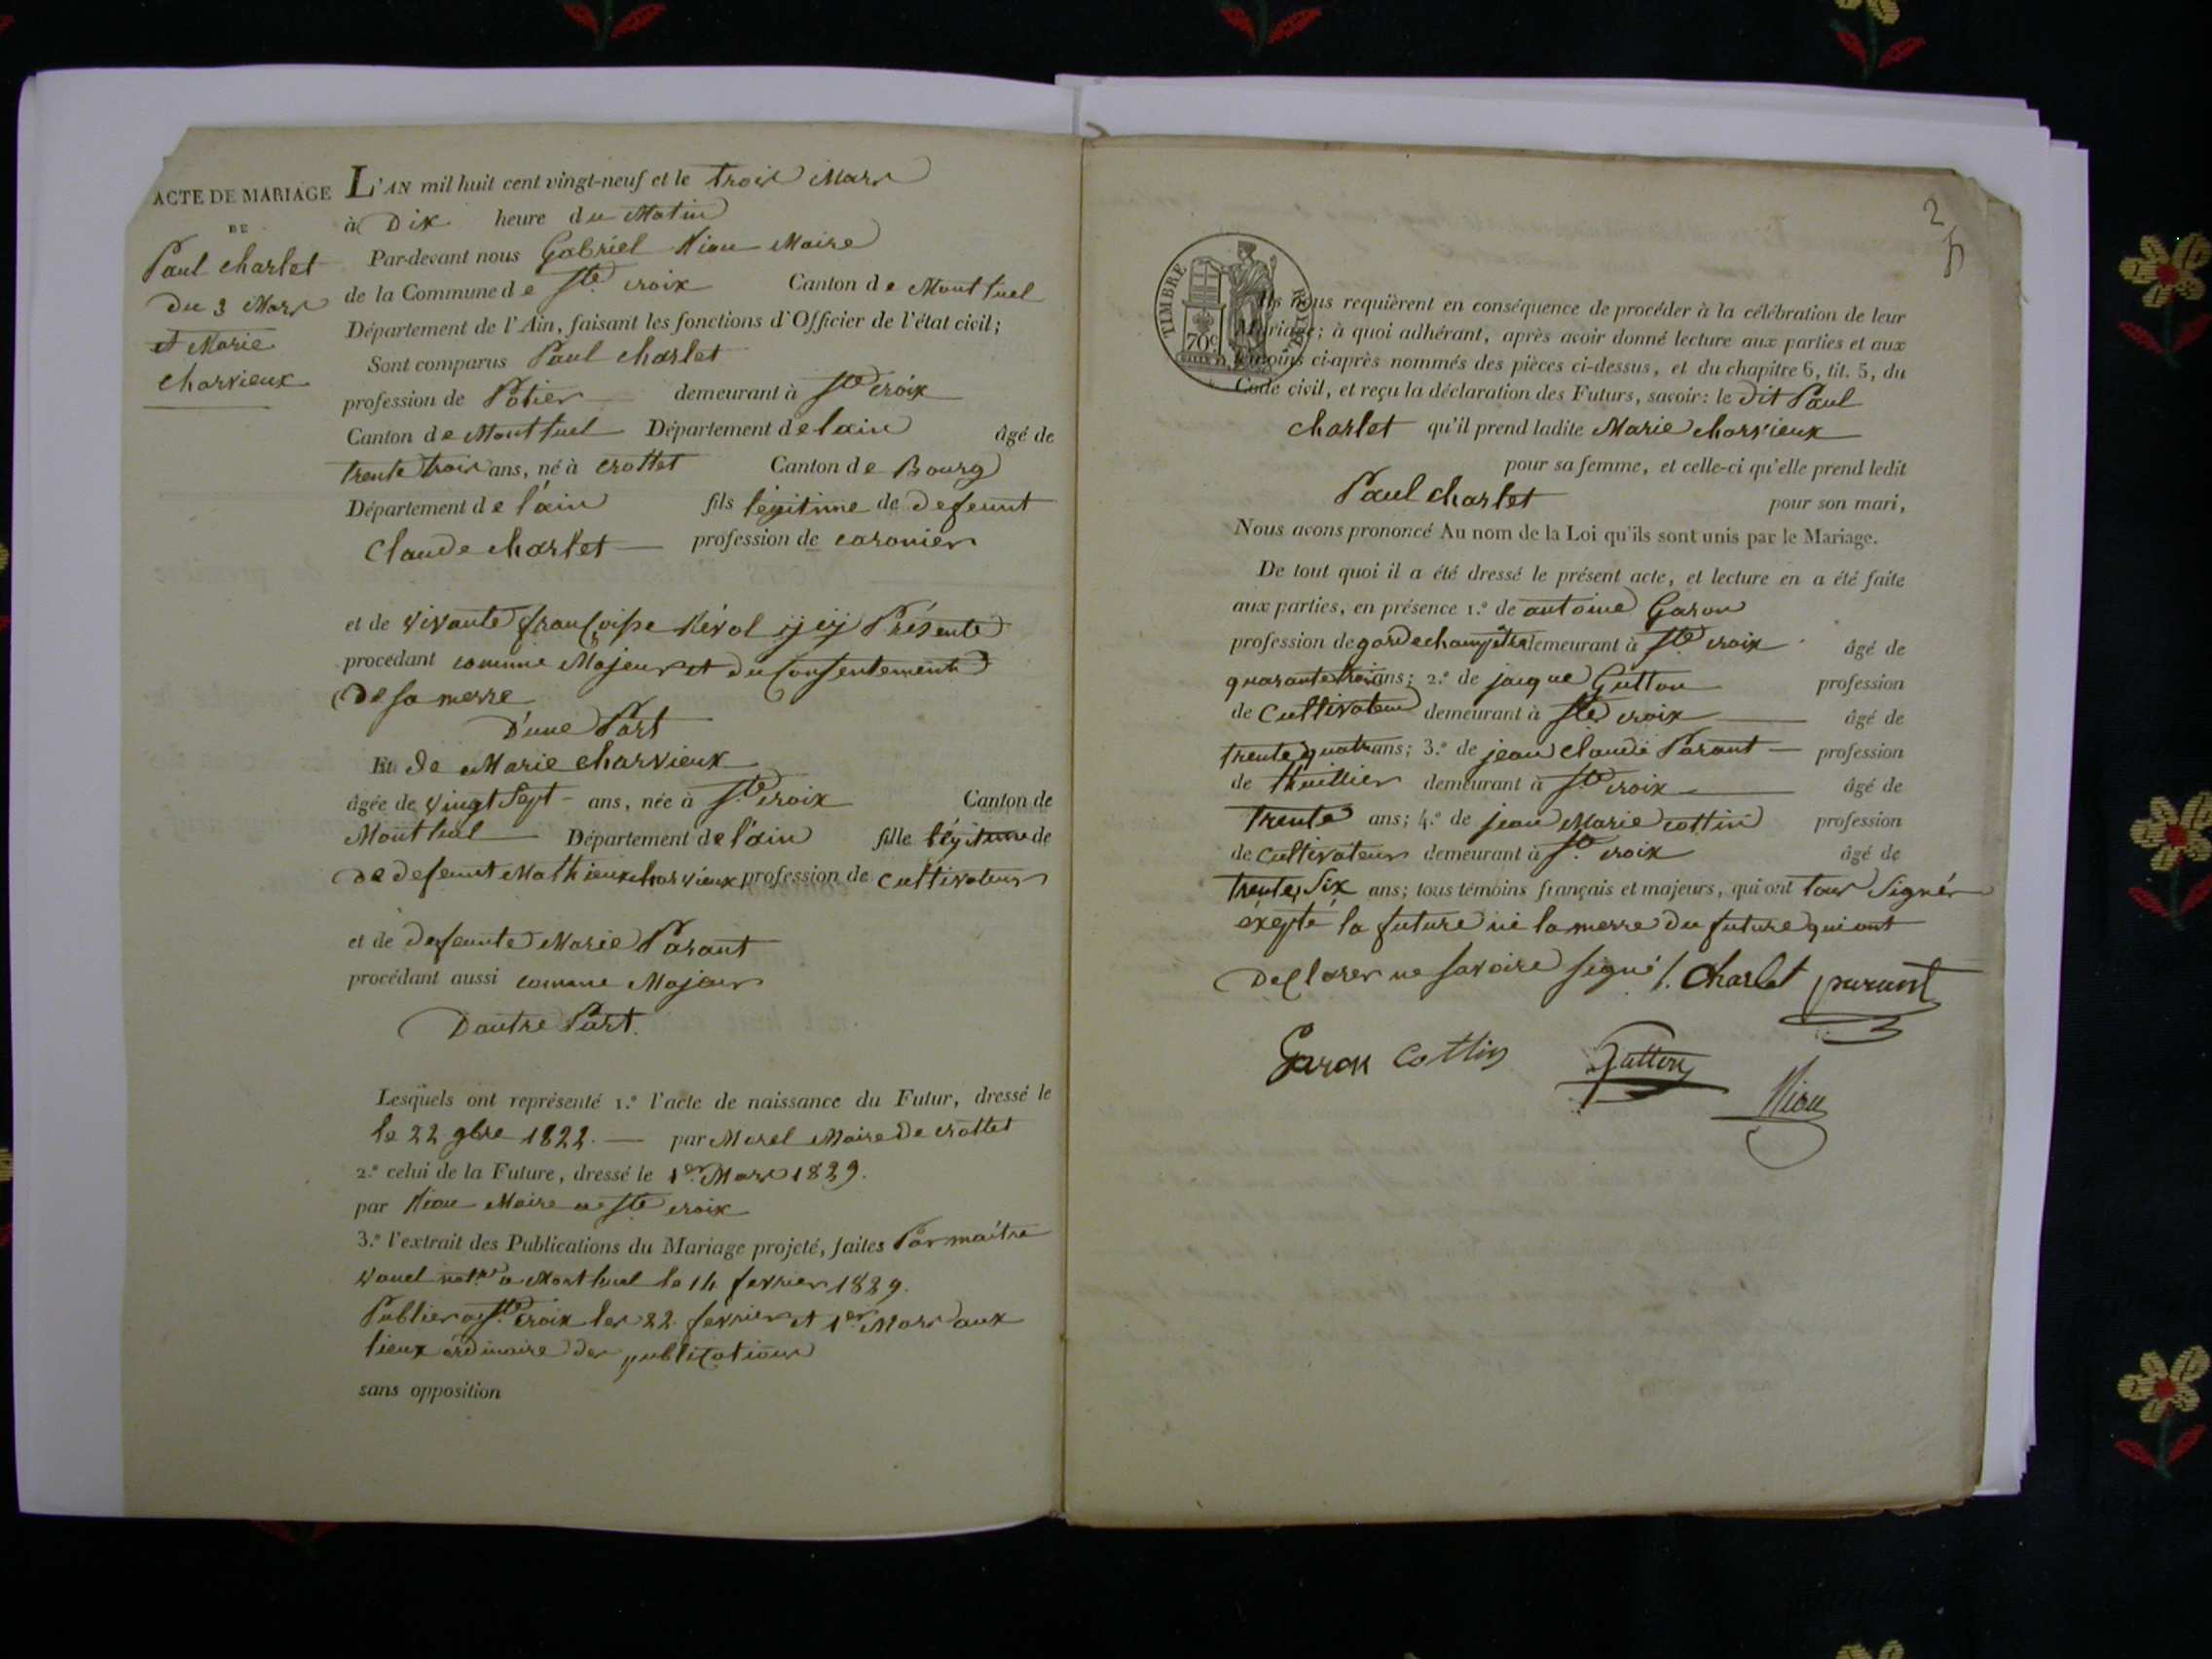 ACTE DE MARIAGE
DE
Paul charlet
du 3 Mars
et Marie
charvieux
L'AN mil huit cent vingt-neuf et le trois Mars
à Dix heure du Matin
Par-devant nous Gabriel Niou Maire
de la Commune de Ste croix Canton de Montluel
Département de l'Ain, faisant les fonctions d'Officier de l'état civil;
Sont comparus Paul charlet
profession de Potier demeurant à Ste Croix
Canton de Montluel Département de lain âgé de
trente trois ans, né à crottet Canton de Bourg
Département de l'ain fils légitime de defeunt
Claude charlet profession de caronier
et de vivante françoise Révol ij cij Présente
procédant comme Majeur et du Consentement
De sa merre
D'une Part
Et de Marie charvieux
âgée de vingt Sept ans, née à Ste croix Canton de
Montluel Département de l'ain fille légitime de
de defeunt Mathieux charvieux profession de cultivateur
et de defeunte Marie Parant
procédant aussi comme Majeur
Dautre Part.
Lesquels ont représenté 1.º l'acte de naissance du Futur, dressé le
le 22 9bre 1822. par Morel Maire de crottet
2.º celui de la Future, dressé le 1er Mars 1829.
par Niou Maire a Ste croix
3.º l'extrait des Publications du Mariage projeté, faites Par maitre
notre a Montluel le 14 fevrier 1829.
Publier a Ste Croix les 22 fevrier et 1er Mars aux
lieux ordinaire des publications
sans opposition
2
TIMBRE ROYAL
70c
Ils nous requièrent en conséquence de procéder à la célébration de leur
Mariage; à quoi adhérant, après avoir donné lecture aux parties et aux
témoins ci-après nommés des pièces ci-dessus, et du chapitre 6, tit. 5, du
Code civil, et reçu la déclaration des Futurs, savoir: le dit Paul
charlet qu'il prend ladite Marie charvieux
pour sa femme, et celle-ci qu'elle prend ledit
Paul charlet pour son mari,
Nous avons prononcé Au nom de la Loi qu'ils sont unis par le Mariage.
De tout quoi il a été dressé le présent acte, et lecture en a été faite
aux parties, en présence 1.º de antoine Garon
profession de gardechampêtre demeurant à Ste croix âgé de
quarante trois ans; 2.º de jacque Gutton profession
de Cultivateur demeurant à Ste croix âgé de
trente quatre ans; 3.º de jean Claude Parant profession
de thuillier demeurant à Ste croix âgé de
trente ans; 4.º de jean Marie cottin profession
de Cultivateur demeurant à Ste croix âgé de
trente Six ans; tous témoins français et majeurs, qui ont tous Signér
éxepté la future ni la merre du future qui ont
Declarer ne savoire signé /. Charlet parant
Garon Cottin Gutton
Niou